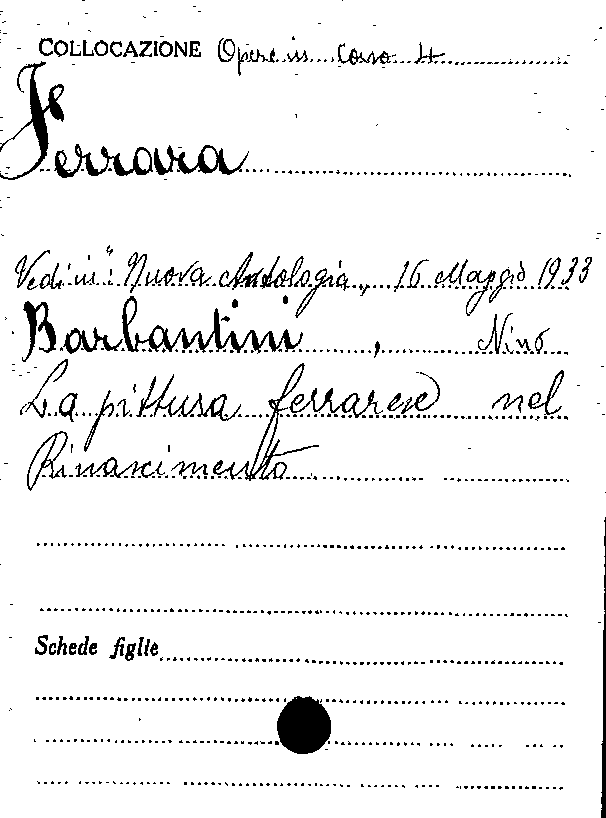 COLLOCAZIONE Opere in corso 4
Ferrara
Vedi in: "Nuova Antologia„ 16 Maggio 1933
Barbantini, Nino
La pittura ferrarese nel
Rinascimento
Schede figlie